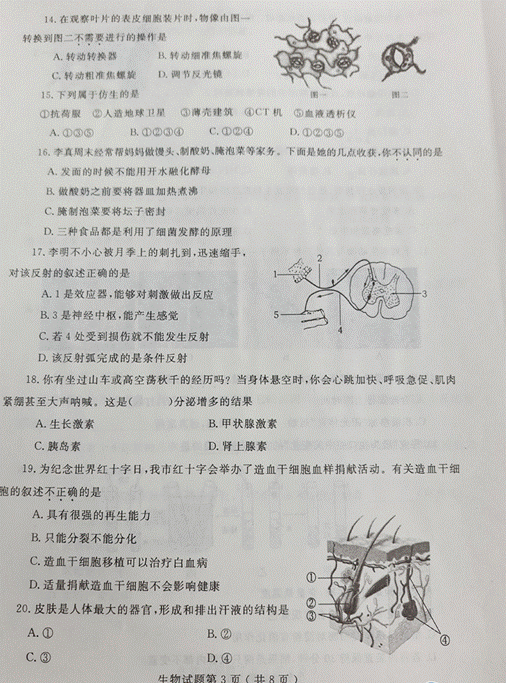 14. 在观察叶片的表皮细胞装片时,物像由图一
转换到图二不需要进行的操作是
A. 转动转换器 B. 转动细准焦螺旋
C. 转动粗准焦螺旋 D. 调节反光镜
图一 图二
15. 下列属于仿生的是
①抗荷服 ②人造地球卫星 ③薄壳建筑 ④CT机 ⑤血液透析仪
A. ①③⑤ B. ①②③④ C. ①②④ D. ①②③⑤
16. 李真周末经常帮妈妈做馒头、制酸奶、腌泡菜等家务。下面是她的几点收获,你不认同的是
A. 发面的时候不能用开水融化酵母
B. 做酸奶之前要将器皿加热煮沸
C. 腌制泡菜要将坛子密封
D. 三种食品都是利用了细菌发酵的原理
17. 李明不小心被月季上的刺扎到,迅速缩手,
对该反射的叙述正确的是
A. 1是效应器,能够对刺激做出反应
B. 3是神经中枢,能产生感觉
C. 若4处受到损伤就不能发生反射
D. 该反射弧完成的是条件反射
1 2 3 4 5
18. 你有坐过山车或高空荡秋千的经历吗?当身体悬空时,你会心跳加快、呼吸急促、肌肉
紧绷甚至大声呐喊。这是( )分泌增多的结果
A. 生长激素 B. 甲状腺激素
C. 胰岛素 D. 肾上腺素
19. 为纪念世界红十字日,我市红十字会举办了造血干细胞血样捐献活动。有关造血干细
胞的叙述不正确的是
A. 具有很强的再生能力
B. 只能分裂不能分化
C. 造血干细胞移植可以治疗白血病
D. 适量捐献造血干细胞不会影响健康
20. 皮肤是人体最大的器官,形成和排出汗液的结构是
A. ① B. ②
C. ③ D. ④
① ② ③ ④
生物试题第3页(共8页)